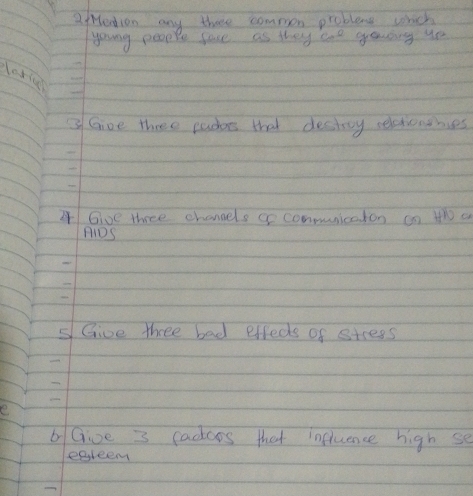 2. Mention any three common problems which
young people face as they are growing up
-
-
-
3. Give three factors that destroy relationships
-
-
-
4 Give three channels of communication on HIV
AIDS
-
-
-
5 Give three bad effects of stress
-
-
-
6 Give 3 factors that influence high se
esteem
-